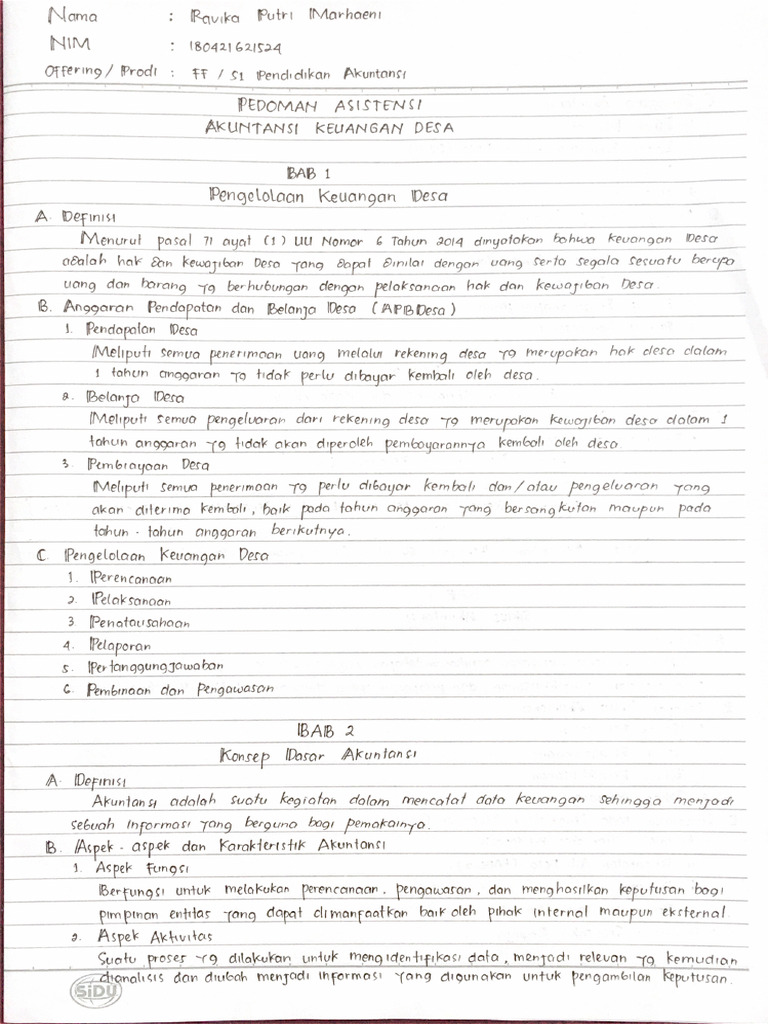 Nama : Ravika Putri Marhaeni
NIM : 180421621524
Offering / Prodi : FF / S1 Pendidikan Akuntansi
PEDOMAN ASISTENSI
AKUNTANSI KEUANGAN DESA
BAB 1
Pengelolaan Keuangan Desa
A. Definisi
Menurut pasal 71 ayat (1) UU Nomor 6 Tahun 2014 dinyatakan bahwa keuangan Desa
adalah hak dan kewajiban Desa yang dapat dinilai dengan uang serta segala sesuatu berupa
uang dan barang yg berhubungan dengan pelaksanaan hak dan kewajiban Desa.
B. Anggaran Pendapatan dan Belanja Desa (APBDesa)
1. Pendapatan Desa
Meliputi semua penerimaan uang melalui rekening desa yg merupakan hak desa dalam
1 tahun anggaran yg tidak perlu dibayar kembali oleh desa.
2. Belanja Desa
Meliputi semua pengeluaran dari rekening desa yg merupakan kewajiban desa dalam 1
tahun anggaran yg tidak akan diperoleh pembayarannya kembali oleh desa
3. Pembiayaan Desa
Meliputi semua penerimaan yg perlu dibayar kembali dan/atau pengeluaran yang
akan diterima kembali, baik pada tahun anggaran yang bersangkutan maupun pada
tahun-tahun anggaran berikutnya.
C. Pengelolaan Keuangan Desa
1. Perencanaan
2. Pelaksanaan
3 Penatausahaan
4. Pelaporan
5. Pertanggungjawaban
6. Pembinaan dan Pengawasan
BAB 2
Konsep Dasar Akuntansi
A. Definisi
Akuntansi adalah suatu kegiatan dalam mencatat data keuangan sehingga menjadi
sebuah informasi yang berguna bagi pemakainya.
B. Aspek-aspek dan Karakteristik Akuntansi
1. Aspek Fungsi
Berfungsi untuk melakukan perencanaan, pengawasan, dan menghasilkan keputusan bagi
pimpinan entitas yang dapat dimanfaatkan baik oleh pihak internal maupun eksternal.
2. Aspek Aktivitas
Suatu proses yg dilakukan untuk mengidentifikasi data, menjadi relevan yg kemudian
dianalisis dan diubah menjadi informasi yang digunakan untuk pengambilan keputusan.
SiDU